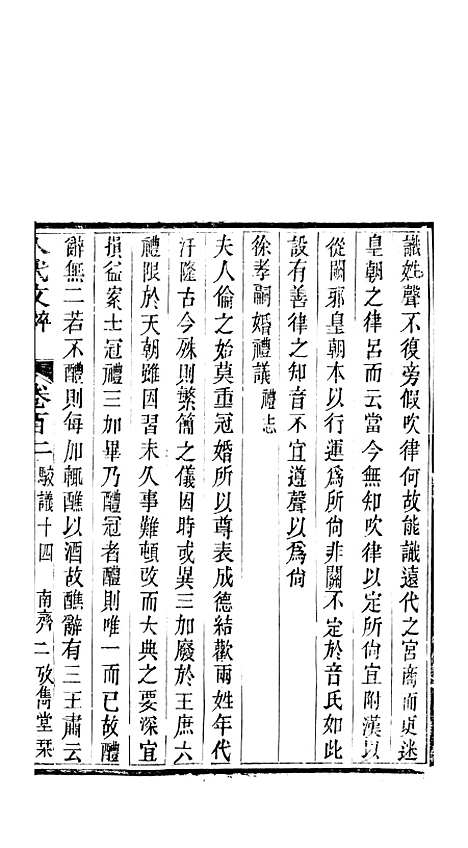 識姓聲不復旁假吹律何故能識遠代之宮商而更迷
皇朝之律呂而云當今無知吹律以定所尙宜附漢以
從闕邪皇朝本以行運爲所尙非關不定於音氏如此
設有善律之知音不宜遵聲以爲尙
徐孝嗣婚禮議禮志
夫人倫之始莫重冠婚所以尊表成德結歡兩姓年代
汙隆古今殊則繁簡之儀因時或異三加廢於王庶六
禮限於天朝雖因習未久事難頓改而大典之要深宜
損益案士冠禮三加畢乃醴冠者醴則唯一而已故醴
辭無二若不醴則每加輒醮以酒故醮辭有三王肅云
八代文粹 卷百二 駁議十四 南齊二 攷雋堂栞